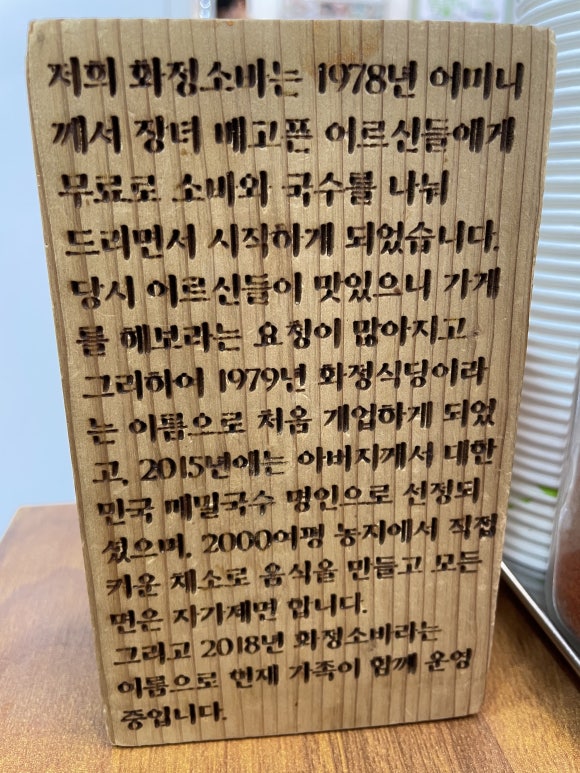 저희 화정소바는 1978년 어머니
께서 장녀 배고픈 어르신들에게
무료로 소바와 국수를 나눠
드리면서 시작하게 되었습니다.
당시 어르신들이 맛있으니 가게
를 해보라는 요청이 많아지고
그리하여 1979년 화정식당이라
는 이름으로 처음 개업하게 되었
고, 2015년에는 아버지께서 대한
민국 메밀국수 명인으로 선정되
셨으며, 2000여평 농지에서 직접
키운 채소로 음식을 만들고 모든
면은 자가제면 합니다.
그리고 2018년 화정소바라는
이름으로 현재 가족이 함께 운영
중입니다.